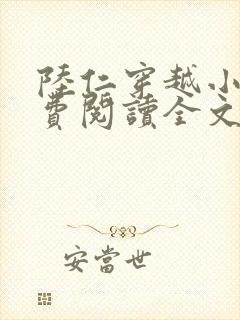 陸仁穿越小
費閱讀全文
安當世